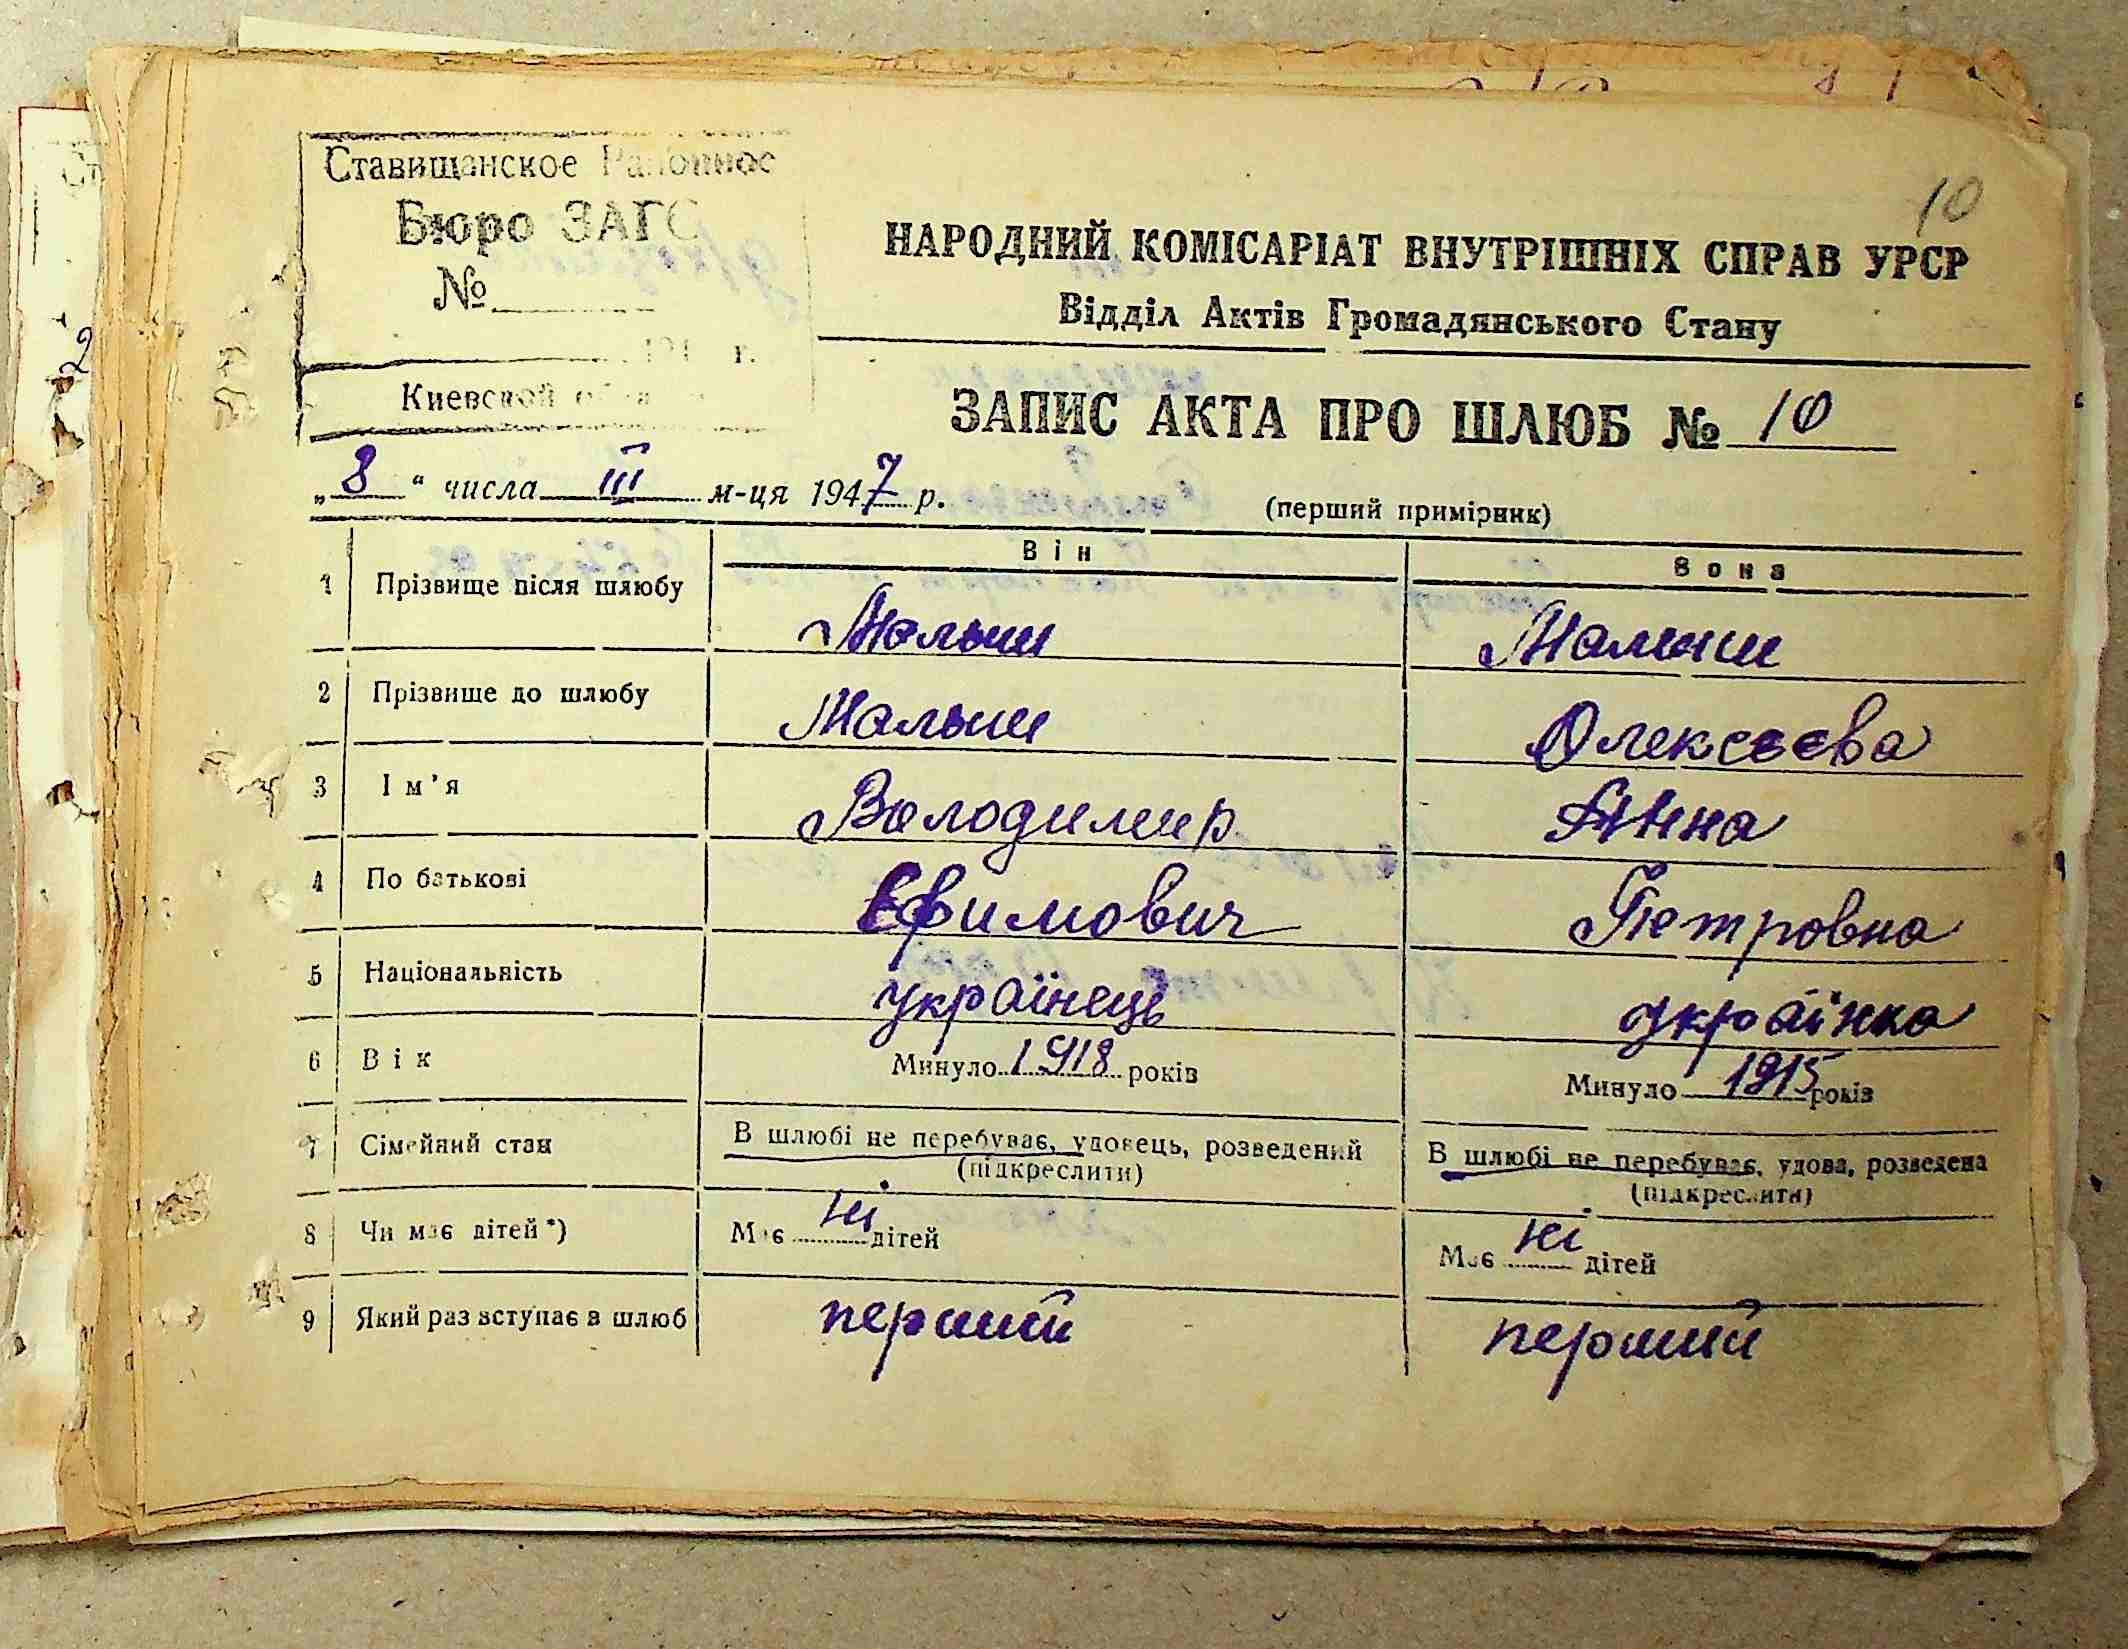 Ставищанское Районное
Бюро ЗАГС
№
194 г.
Киевской
10
НАРОДНИЙ КОМІСАРІАТ ВНУТРІШНІХ СПРАВ УРСР
Відділ Актів Громадянського Стану
ЗАПИС АКТА ПРО ШЛЮБ № 10
„8“ числа III м-ця 1947 р.
(перший примірник)
Він Вона
1 Прізвище після шлюбу Малыш Малыш
2 Прізвище до шлюбу Малыш Олексєєва
3 Ім'я Володимир Анна
4 По батькові Єфимович Петровна
5 Національність українець українка
6 Вік Минуло 1918 років Минуло 1915 років
7 Сімейний стан В шлюбі не перебуває, удовець, розведений В шлюбі не перебуває, удова, розведена
(підкреслити) (підкреслити)
8 Чи має дітей *) Має ні дітей Має ні дітей
9 Який раз вступає в шлюб перший перший
2